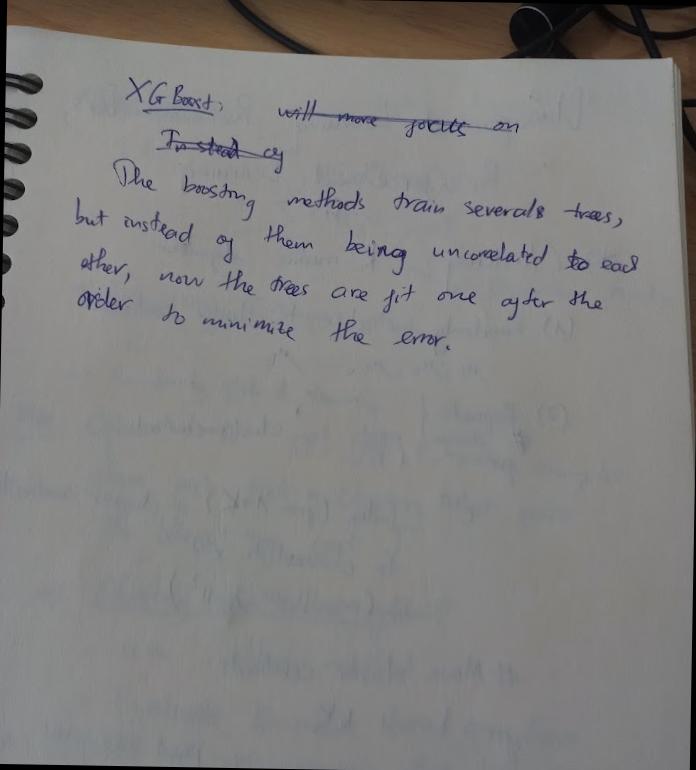 XGBoost: will more focus on
Instead of
The boosting methods train severals trees,
but instead of them being uncorrelated to each
other, now the trees are fit one after the
order to minimize the error.